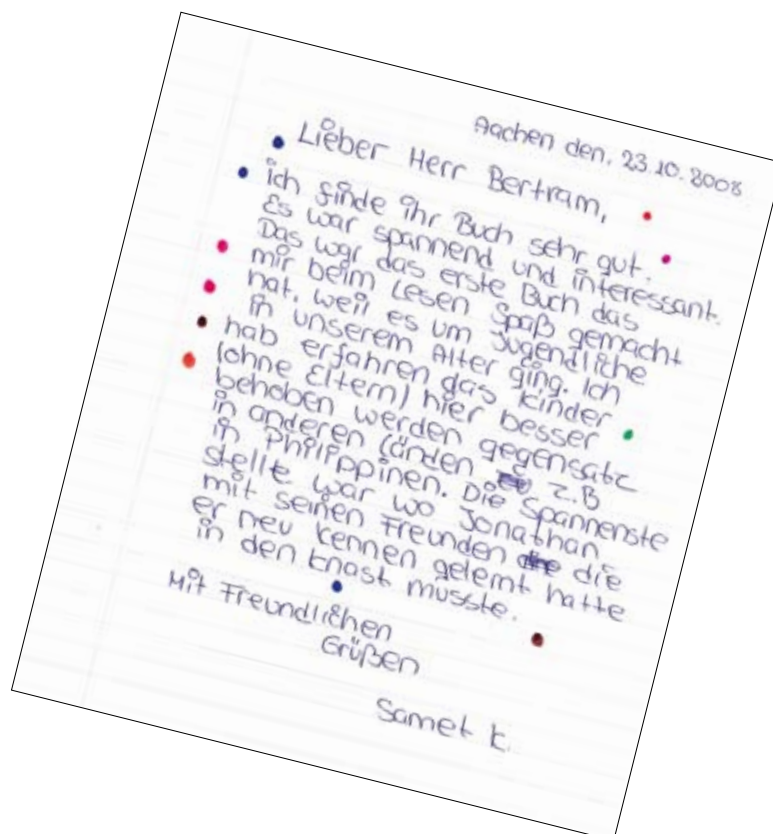 Aachen den. 23.10.2008
Lieber Herr Bertram,
ich finde ihr Buch sehr gut.
Es war spannend und interessant.
Das war das erste Buch das
mir beim Lesen Spaß gemacht
hat, weil es um Jugendliche
in unserem Alter ging. Ich
hab erfahren das Kinder
(ohne Eltern) hier besser
behoben werden gegensatz
in anderen Länden z.B
in Philippinen. Die Spannenste
stelle war wo Jonathan
mit seinen Freunden die
er neu kennen gelernt hatte
in den Knast musste.
Mit Freundlichen
Grüßen
Samet K.